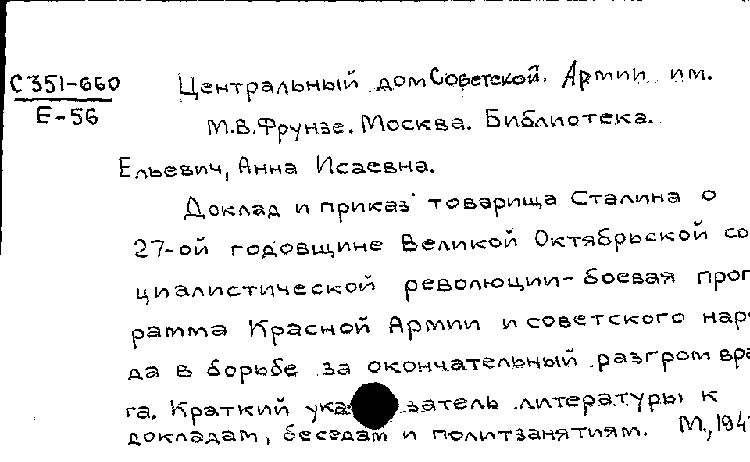 С351-660 Центральный дом Советской Армии им.
Е-56 М.В.Фрунзе. Москва. Библиотека.
Ельевич, Анна Исаевна.
Доклад и приказ товарища Сталина о
27-ой годовщине Великой Октябрьской со
циалистической революции - боевая прог
рамма Красной Армии и советского наро
да в борьбе за окончательный разгром вра
га. Краткий указатель литературы к
докладам, беседам и политзанятиям. М.,